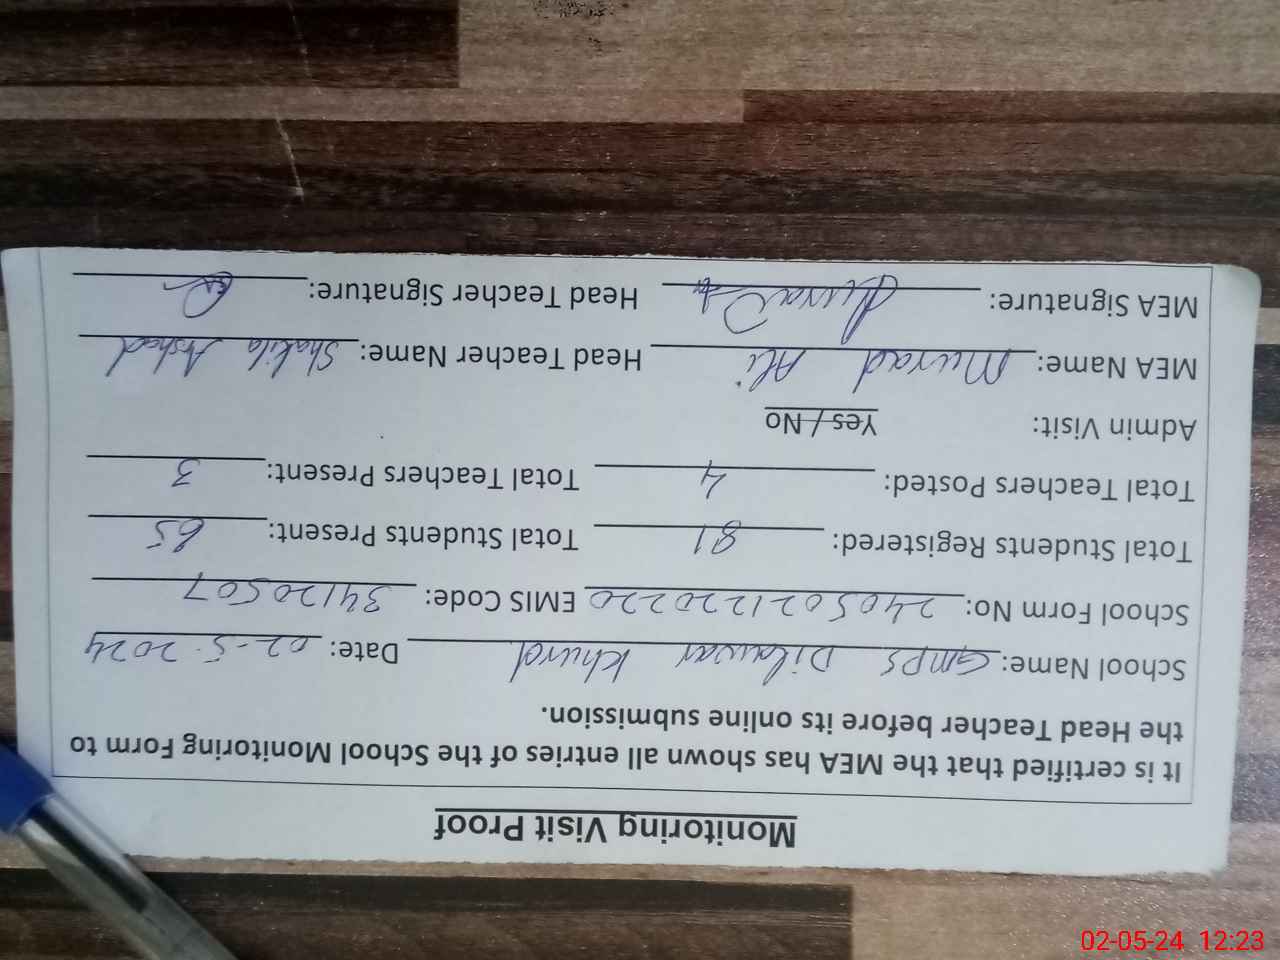 Monitoring Visit Proof
It is certified that the MEA has shown all entries of the School Monitoring Form to
the Head Teacher before its online submission.
School Name: GMPS Dilawar Khurd Date: 02-5-2024
School Form No: 2405021220220 EMIS Code: 34120507
Total Students Registered: 81 Total Students Present: 65
Total Teachers Posted: 4 Total Teachers Present: 3
Admin Visit: Yes / No
MEA Name: Murad Ali Head Teacher Name: Shakila Arshad
MEA Signature: Head Teacher Signature:
02-05-24 12:23